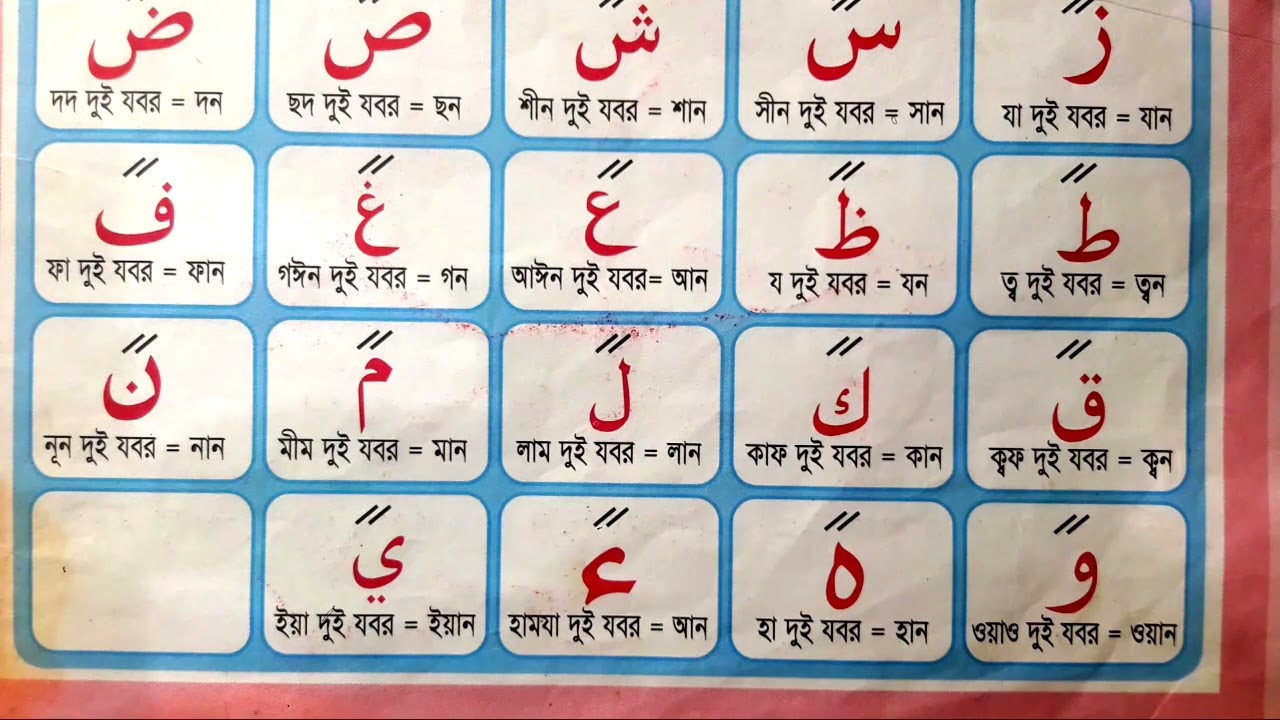 زً
যা দুই যবর = যান
سً
সীন দুই যবর = সান
شً
শীন দুই যবর = শান
صً
ছদ দুই যবর = ছন
ضً
দদ দুই যবর = দন
طً
ত্ব দুই যবর = ত্বন
ظً
য দুই যবর = যন
عً
আঈন দুই যবর= আন
غً
গঈন দুই যবর = গন
فً
ফা দুই যবর = ফান
قً
ক্বফ দুই যবর = ক্বন
كً
কাফ দুই যবর = কান
لً
লাম দুই যবর = লান
مً
মীম দুই যবর = মান
نً
নূন দুই যবর = নান
وً
ওয়াও দুই যবর = ওয়ান
هً
হা দুই যবর = হান
ءً
হামযা দুই যবর = আন
يً
ইয়া দুই যবর = ইয়ান